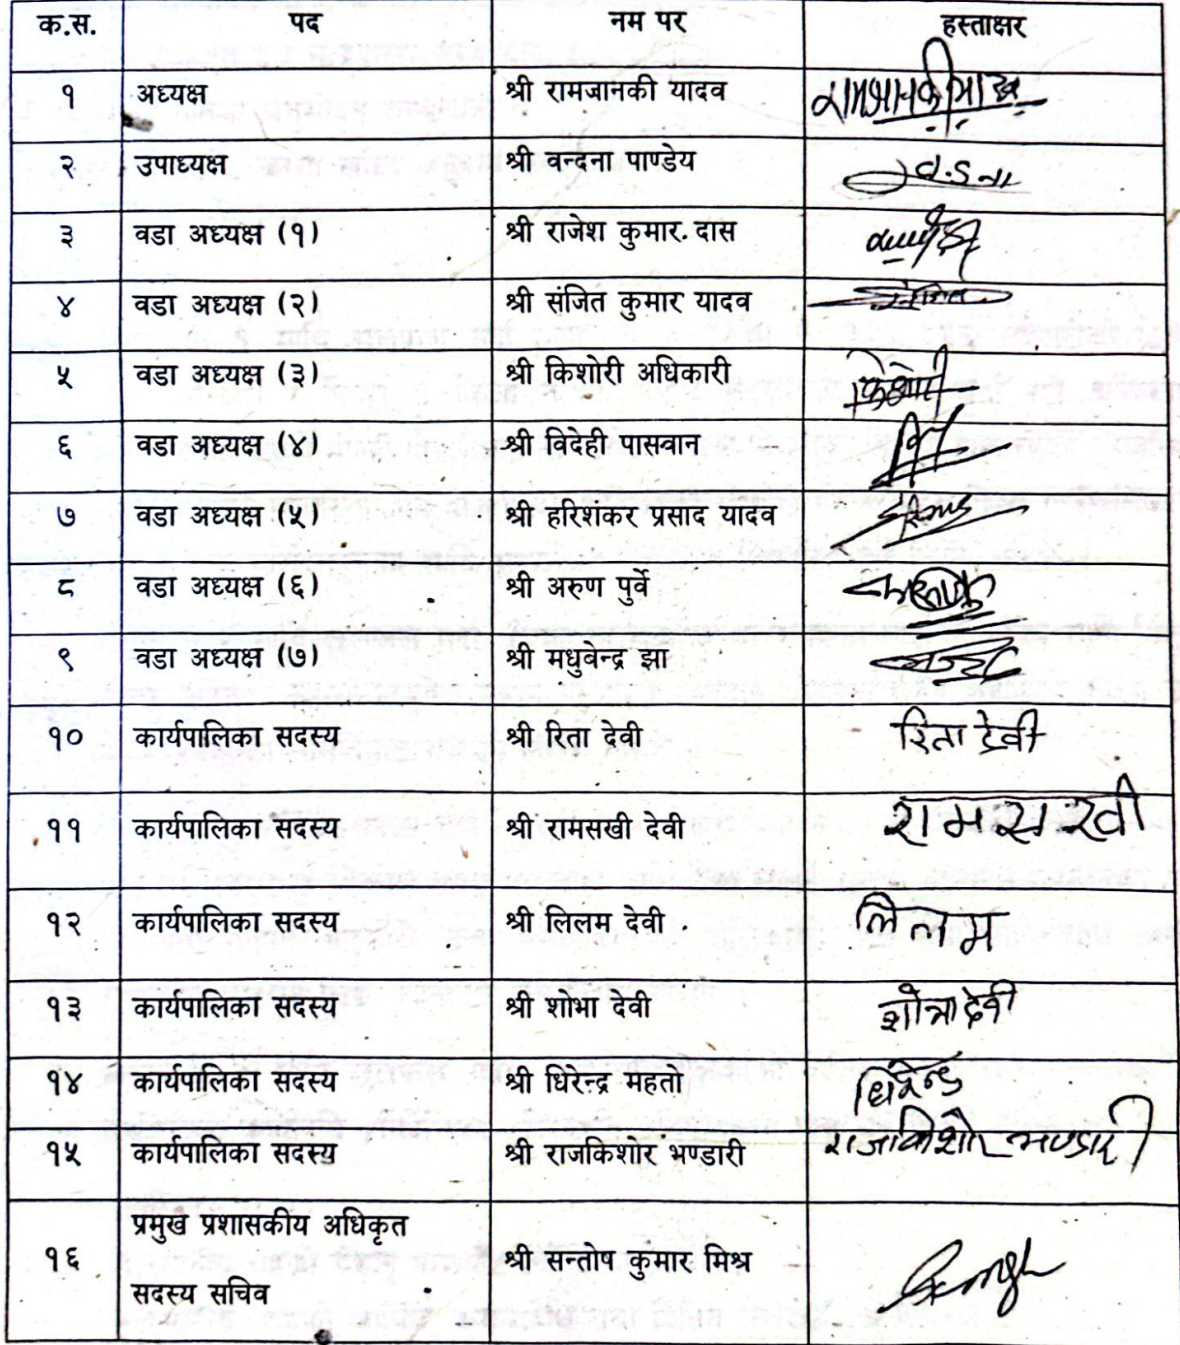 क.स. पद नम पर हस्ताक्षर
१ अध्यक्ष श्री रामजानकी यादव
२ उपाध्यक्ष श्री वन्दना पाण्डेय
३ वडा अध्यक्ष (१) श्री राजेश कुमार. दास
४ वडा अध्यक्ष (२) श्री संजित कुमार यादव
५ वडा अध्यक्ष (३) श्री किशोरी अधिकारी किशोरी
६ वडा अध्यक्ष (४) श्री विदेही पासवान
७ वडा अध्यक्ष (५) श्री हरिशंकर प्रसाद यादव
८ वडा अध्यक्ष (६) श्री अरुण पुर्वे
९ वडा अध्यक्ष (७) श्री मधुवेन्द्र झा
१० कार्यपालिका सदस्य श्री रिता देवी रिता देवी
११ कार्यपालिका सदस्य श्री रामसखी देवी रामसखी
१२ कार्यपालिका सदस्य श्री लिलम देवी लिलम
१३ कार्यपालिका सदस्य श्री शोभा देवी शोभा देवी
१४ कार्यपालिका सदस्य श्री धिरेन्द्र महतो धिरेन्द्र
१५ कार्यपालिका सदस्य श्री राजकिशोर भण्डारी राजकिशोर भण्डारी
प्रमुख प्रशासकीय अधिकृत
१६ श्री सन्तोष कुमार मिश्र
सदस्य सचिव